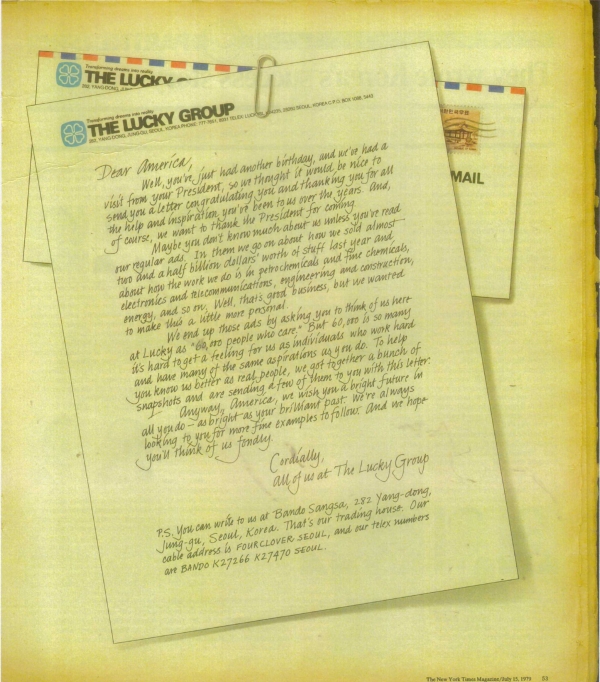 Transforming dreams into reality
THE LUCKY G
Transforming dreams into reality
THE LUCKY GROUP
MAIL
Dear America,
Well, you've just had another birthday, and we've had a
visit from your President, so we thought it would be nice to
send you a letter congratulating you and thanking you for all
the help and inspiration you've been to us over the years. And,
of course, we want to thank the President for coming.
Maybe you don't know much about us unless you've read
our regular ads. In them we go on about how we sold almost
two and a half billion dollars' worth of stuff last year and
about how the work we do is in petrochemicals and fine chemicals,
electronics and telecommunications, engineering and construction,
energy, and so on. Well, that's good business, but we wanted
to make this a little more personal.
We end up those ads by asking you to think of us here
at Lucky as "60,000 people who care." But 60,000 is so many
it's hard to get a feeling for us as individuals who work hard
and have many of the same aspirations as you do. To help
you know us better as real people, we got together a bunch of
snapshots and are sending a few of them to you with this letter.
Anyway, America, we wish you a bright future in
all you do – as bright as your brilliant past. We're always
looking to you for more fine examples to follow. And we hope
you'll think of us fondly.
Cordially,
all of us at The Lucky Group
P.S. You can write to us at Bando Sangsa, 282 Yang-dong,
Jung-gu, Seoul, Korea. That's our trading house. Our
cable address is FOURCLOVER SEOUL, and our telex numbers
are BANDO K27266 K27470 SEOUL.
The New York Times Magazine/July 15, 1979 53